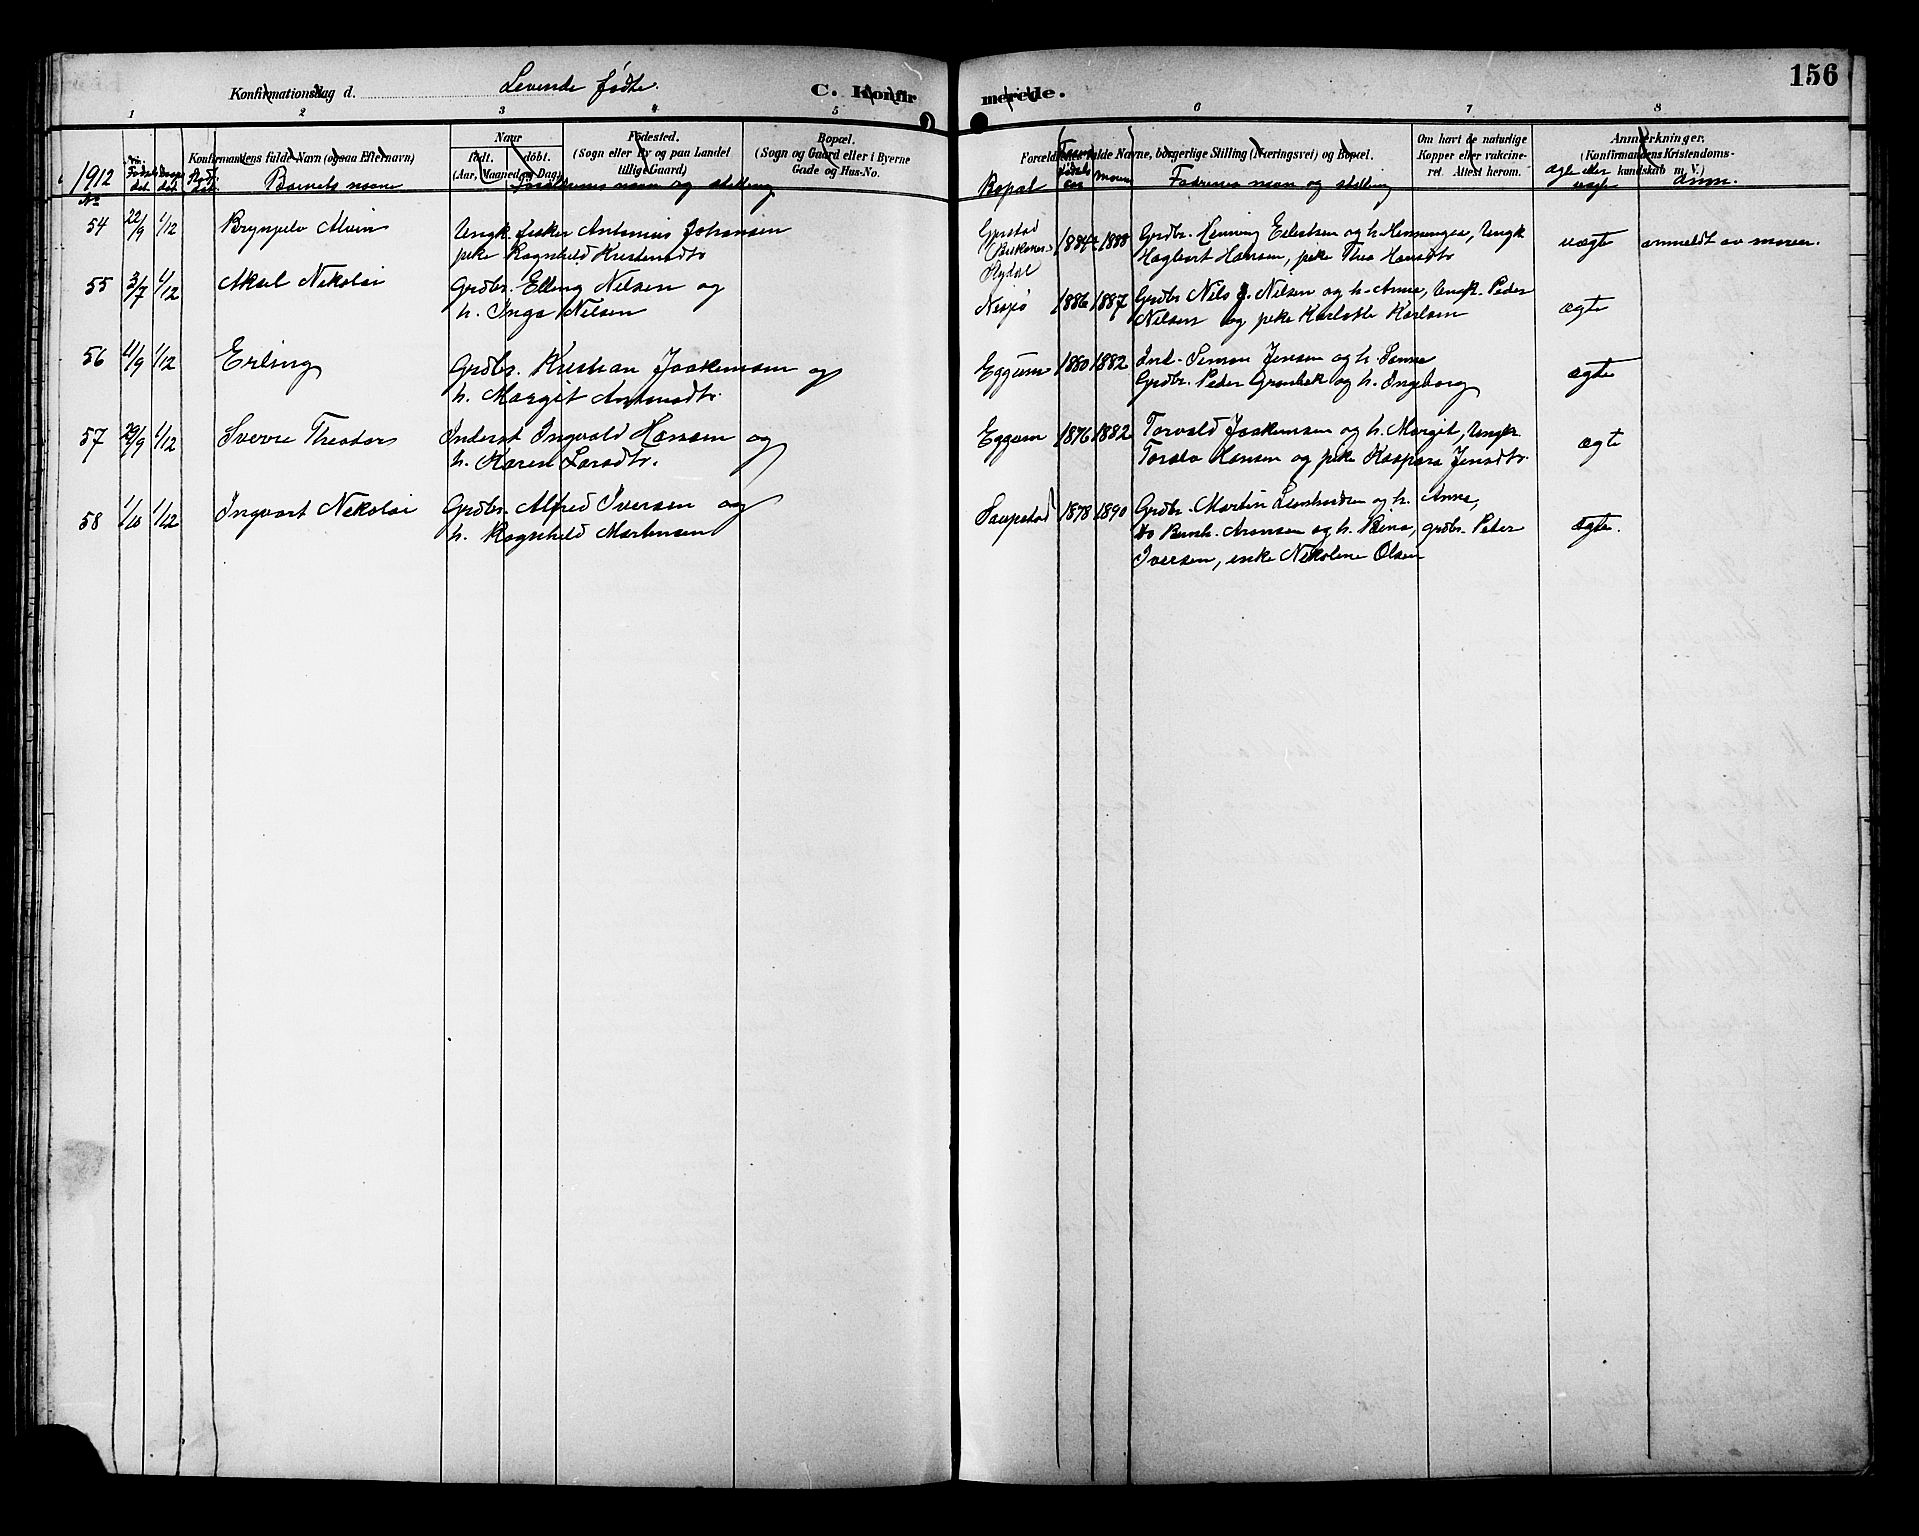 156
Konfirmationsdag d. Levende fødte. C. Konfirmerede.
1 2 3 4 5 6 7 8
Konfirmandens fulde Navn (ogsaa Efternavn)
Naar
født. døbt.
(Aar, Maaned og Dag)
Fødested.
(Sogn eller By og paa Landet
tillige Gaard)
Bopæl.
(Sogn og Gaard eller i Byerne
Gade og Hus-No.
Forældrenes fulde Navne, borgerlige Stilling (Næringsvei) og Bopæl.
Om havt de naturlige
Kopper eller vakcine-
ret. Attest herom.
Anmerkninger.
(Konfirmandens Kristendoms-
kundskab m. V.)
1912
No
Barnets navn
Forældrenes navn og stilling
Bopæl
Faderens
fødsels
aar
Moren
Fadrenes navn og stilling
ægte eller
uægte
Anm.
54 22/9 1/12 Brynjulv Alvin Ungk. fisker Antonius Johansen
pike Ragnhild Kristensdtr
1884 1888 Grdbr. Henning Eilertsen og h. Henningea, Ungk
Hagbart Hansen, pike Thea Hansdtr
uægte anmeldt av moren.
55 3/7 1/12 Aksel Nikolai Grdbr. Elling Nilsen og
h. Inga Nilsen
1886 1887 Grdbr Nils J. Nilsen og h. Anna, Ungk. Peder
Nilsen og pike Karlotte Karlsen
ægte
56 11/9 1/12 Erling Grdbr. Kristian Joakimsen og
h. Margit Antonsdtr.
Eggum 1880 1882 Ind. Simon Jensen og h. Sanna
Grdbr. Peder Grønbek og h. Ingeborg
ægte
57 29/9 1/12 Sverre Theodor Inderst Ingvald Hansen og
h. Karen Larsdtr.
Eggum 1876 1882 Torvald Joakimsen og h. Margit, Ungk.
Toralv Hansen og pike Kaspara Jensdtr.
ægte
58 1/10 1/12 Ingvart Nikolai Grdbr. Alfred Iversen og
h. Ragnhild Martinsen
Saupstad 1878 1890 Grdbr. Martin Leonhardsen og h. Anna,
do Bernh. Aronsen og h. Bina, grdbr. Peder
Iversen, enke Nikoline Olsen
Ægte.